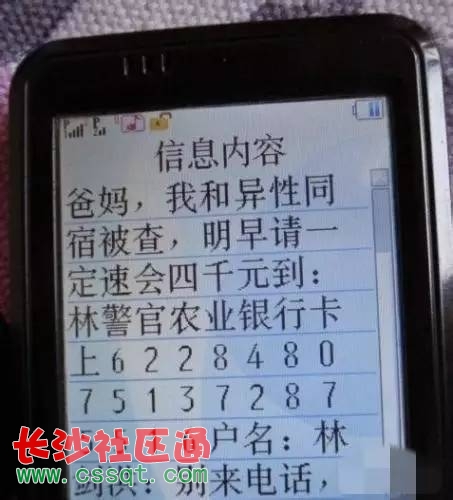 信息内容
爸妈，我和异性同
宿被查，明早请一
定速会四千元到：
林警官农业银行卡
上6228480
75137287
户名：林
剑侠：别来电话，
长沙社区通
www.cssqt.com